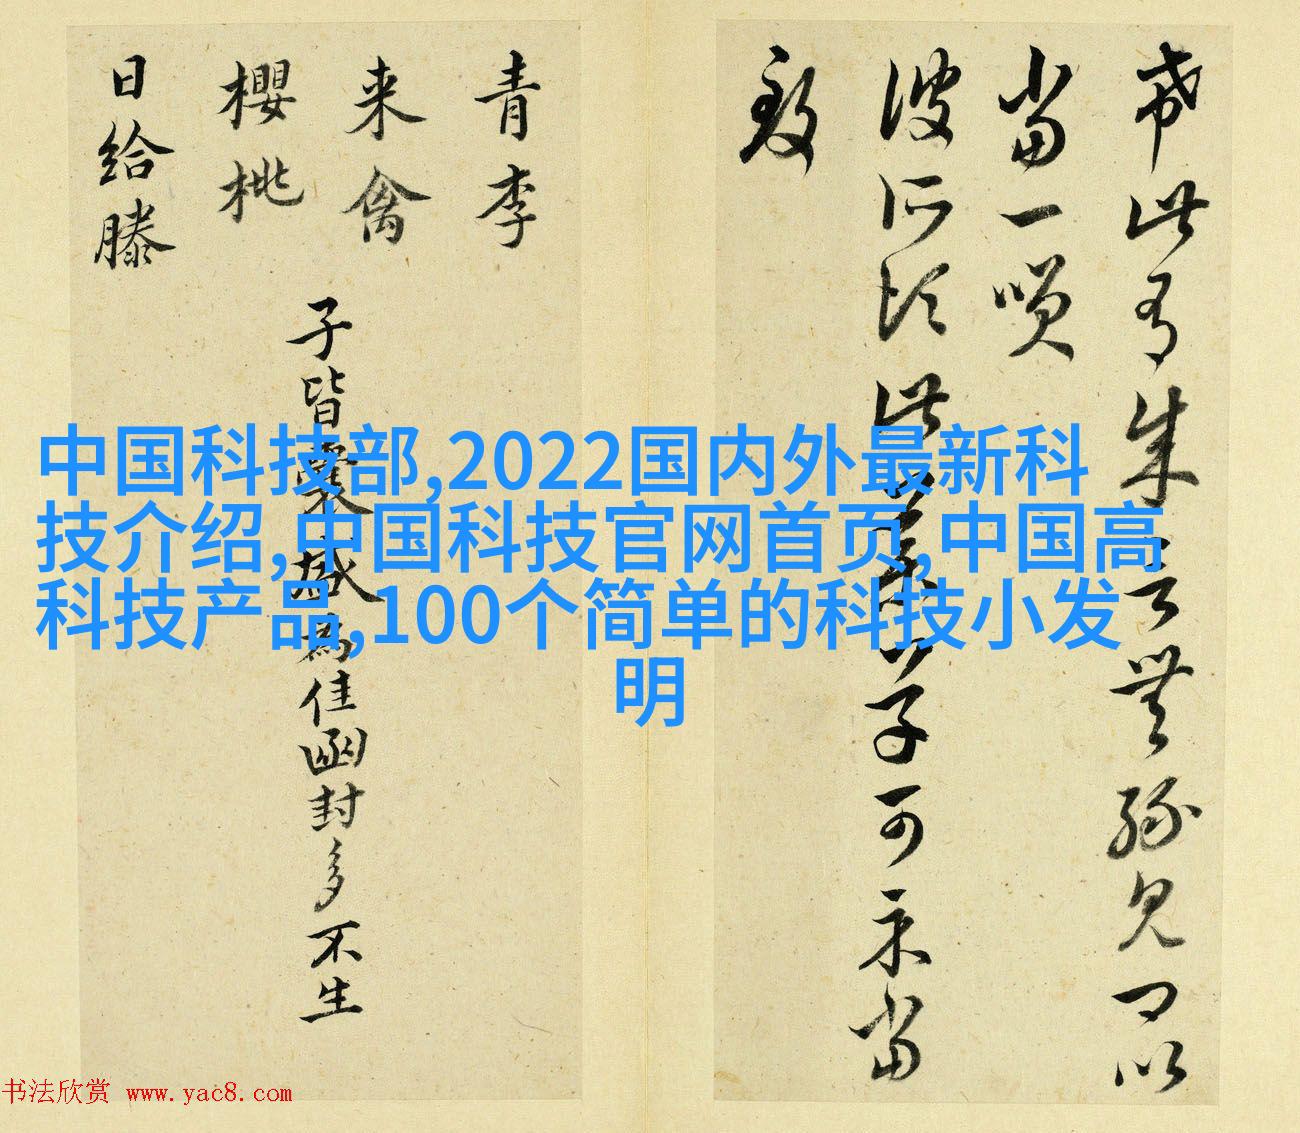 青李
来禽
櫻桃
日给滕
子皆囊盛為佳函封多不生
當一
彼所須此藥草可示當
致
中国科技部,2022国内外最新科
技介绍,中国科技官网首页,中国高
科技产品,100个简单的科技小发
明
书法欣赏 www.yac8.com